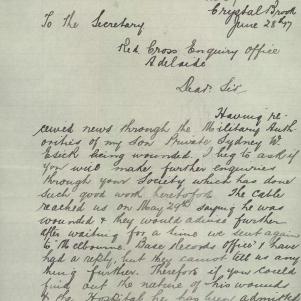 Crystal Brook
June 28th 17
To the Secretary
Red Cross Enquiry Office
Adelaide
Dear Sir
Having re-
ceived news through the Military Auth
orities of my son Private Sydney W.
being wounded. I beg to ask if
you will make further enquiries
through your Society which has done
such good work heretofore. The Cable
reached us on May 29th saying he was
wounded & they would advise further
after waiting for a time we sent again
to Melbourne. Base Records Office & I have
had a reply, but they cannot tell us any
thing further. Therefore if you could
find out the nature of his wounds
& the Hospital he has been admitted